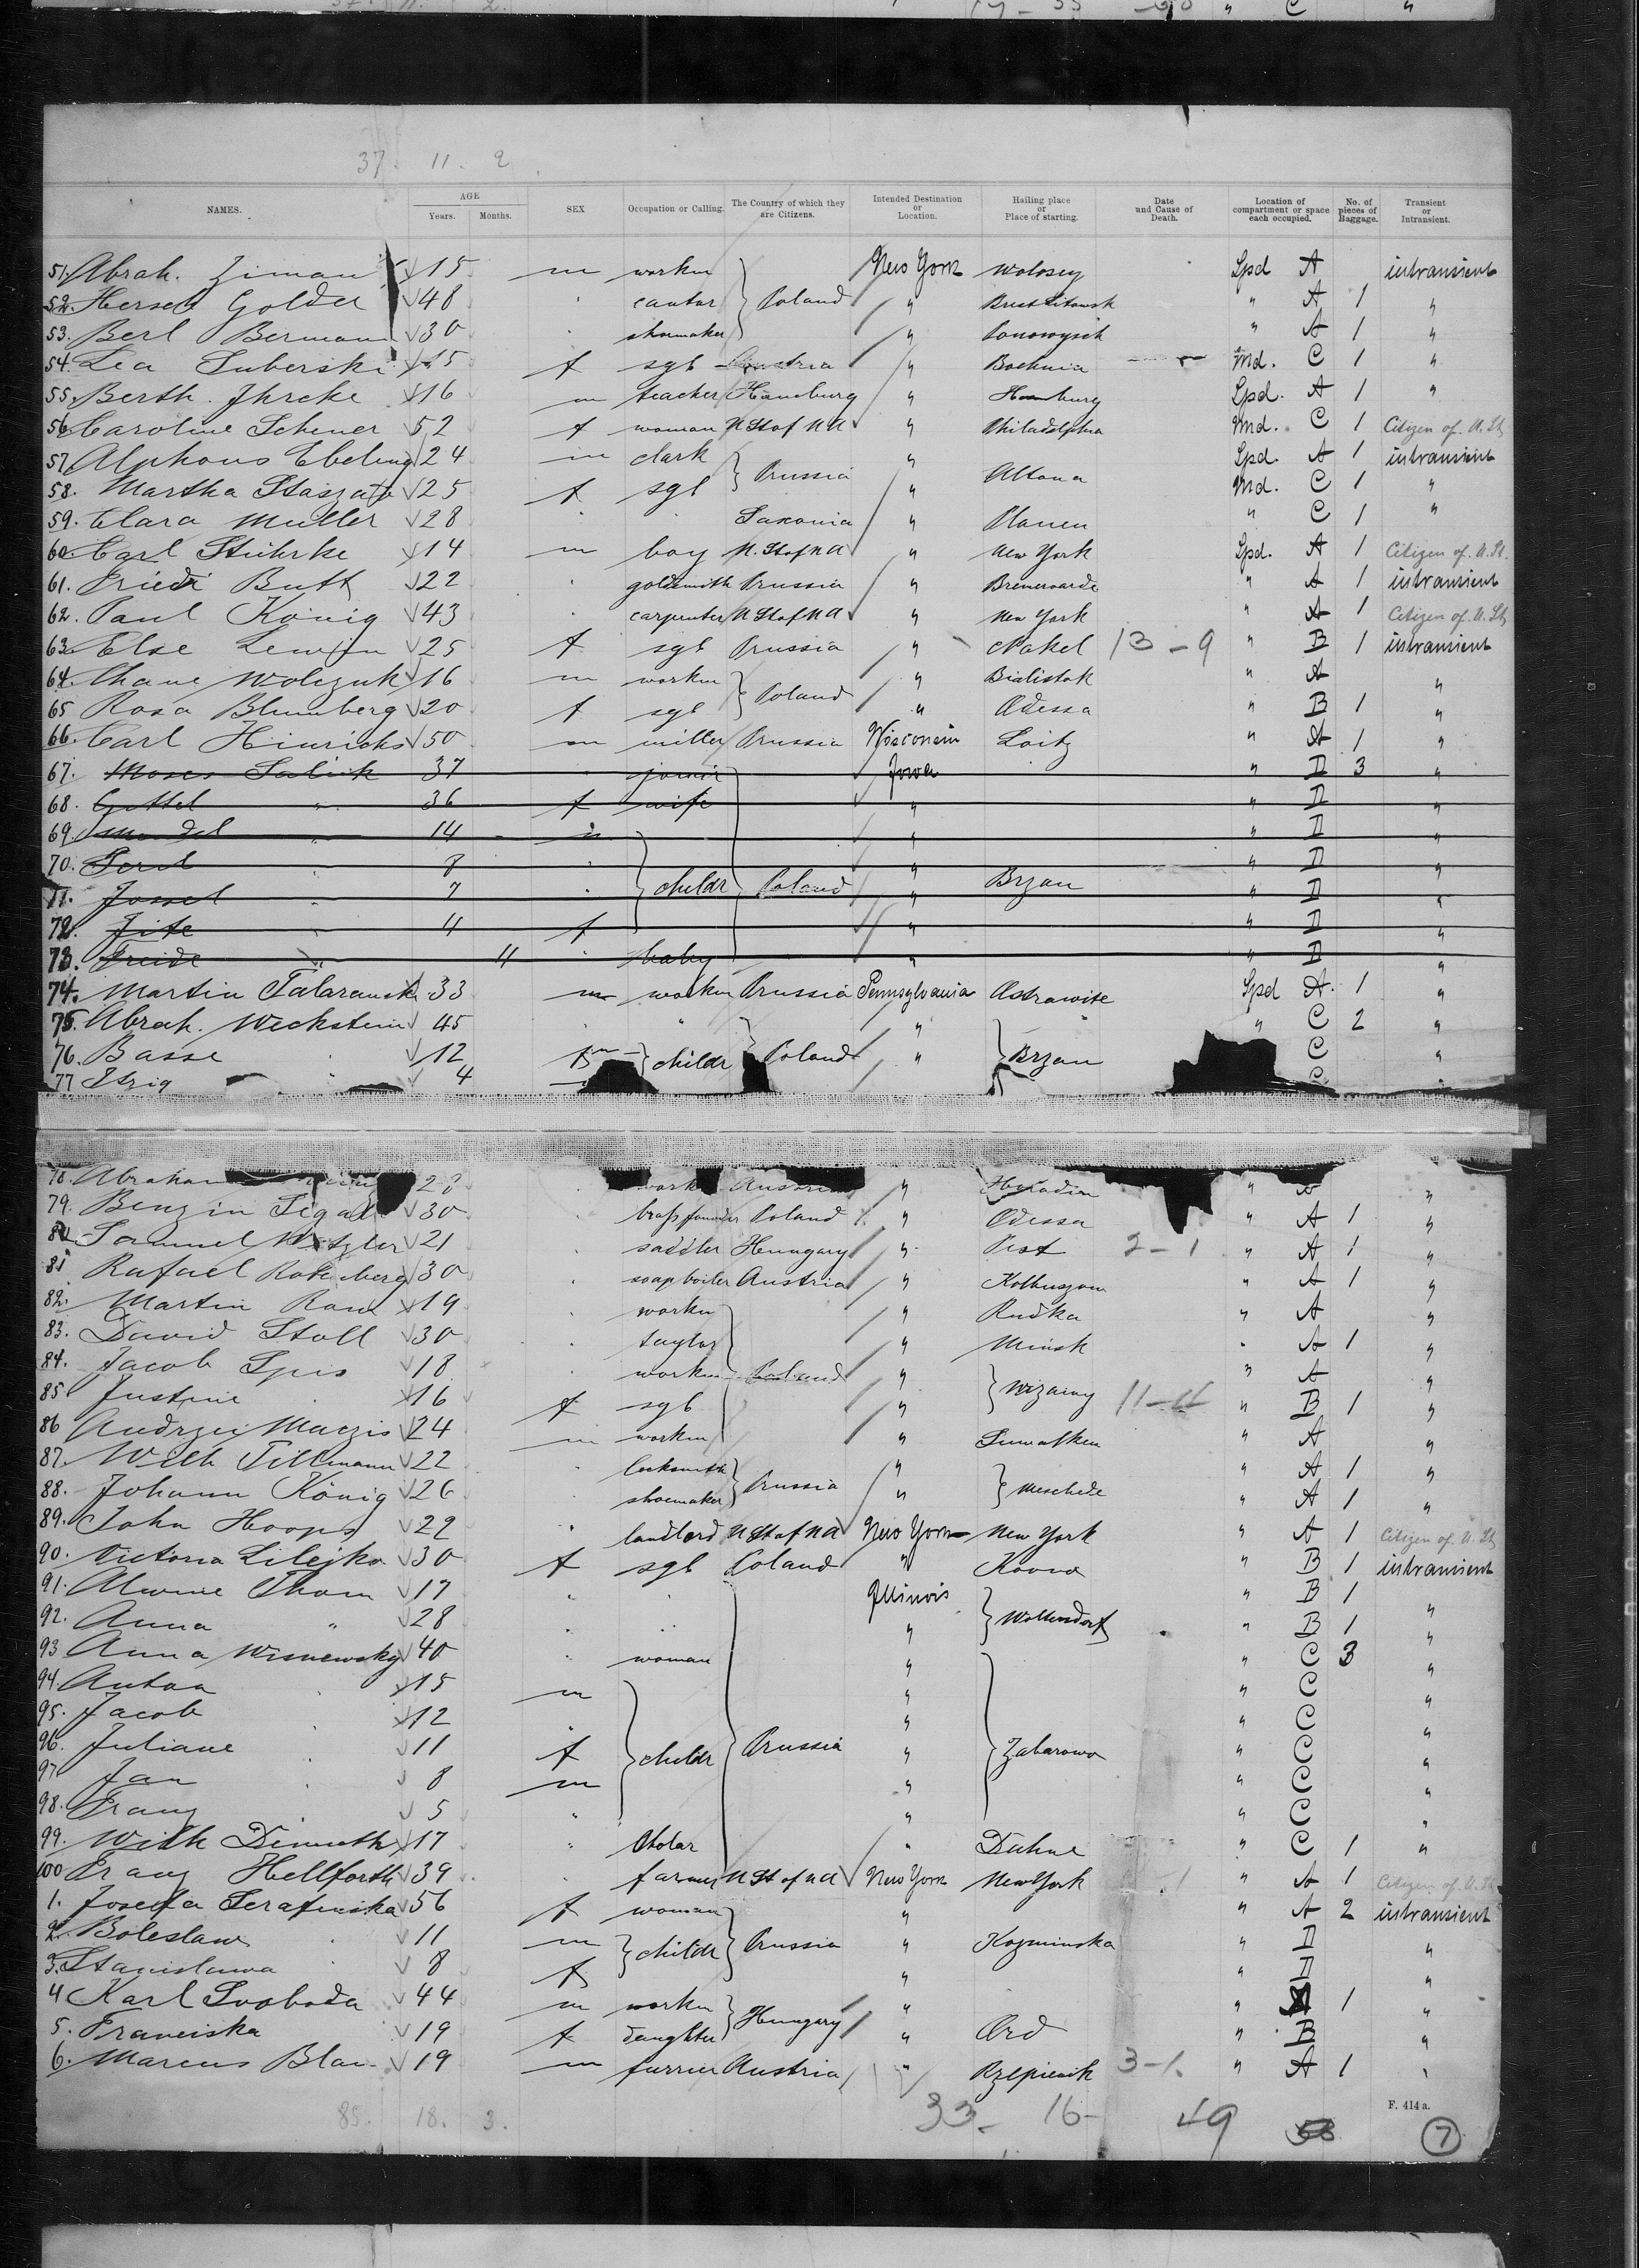 37. 11. 2
NAMES. AGE Years. Months. SEX Occupation or Calling. The Country of which they are Citizens. Intended Destination or Location. Hailing place or Place of starting. Date and Cause of Death. Location of compartment or space each occupied. No. of pieces of Baggage. Transient or Intransient.
51. Abrah. Ziman 15 m worker New York Spd A intransient
52. Hersch Golder 48 " cantor Poland " Brest Litowsk " A 1 "
53. Berl Berman 30 " shoemaker " " A 1 "
54. Lea 15 f sgl Austria " Bochnia Md. C 1 "
55. Berth. Jhrcke 16 m teacher Hamburg " Hamburg Spd. A 1 "
56. Caroline Scheuer 52 f woman U St of N A " Philadelphia Md. C 1 Citizen of U. St
57. Alphons Ebeling 24 m clark " Spd. A 1 intransient
58. Martha 25 f sgl Prussia " Altona Md. C 1 "
59. Clara Muller 28 " " Saxonia " Plauen " C 1 "
60. Carl Stührke 14 m boy U. St of N A " New York Spd. A 1 Citizen of U. St.
61. Friedr Butt 22 " goldsmith Prussia " " A 1 intransient
62. Paul König 43 " carpenter U St of N A " New York " A 1 Citizen of U. St
63. Else Lewin 25 f sgl Prussia " Nakel 13-9 " B 1 intransient
64. Chane Wolczuk 16 m worker " Bialistok " A "
65 Rosa Blumberg 20 f sgl Poland " Odessa " B 1 "
66. Carl Hinrichs 50 m miller Prussia Wisconsin Loitz " A 1 "
67. Moses 37 " Iowa " D 3 "
68. Guttel " 36 f wife " " D "
69. Mendel " 14 m " " D "
70. " 8 " " " D "
71. Jossel " 7 " childr Poland " Brzan " D "
72. Jite " 4 f " " D "
73. Freide " 4 " baby " " D "
74. Martin 33 m worker Prussia Pennsylvania Spd A. 1 "
75. Abrah. Weckstein 45 " " " " C 2 "
76. Basse " 12 childr Poland " Brzan C "
77 4 " C
78. Abraham worker Austria " " "
79. Benzin Segal 30 " Poland " Odessa " A 1 "
80 Samuel 21 saddler Hungary " Pest 2-1 " A 1 "
81 Rafael Rotenberg 30 " soap boiler Austria " " A 1 "
82. Martin 19 " worker " Rudka " A "
83. David Stoll 30 " taylor " Minsk " A 1 "
84. Jacob Spis 18 " worker Poland " " A "
85 Justine 16 f sgl " Wizainy 11- " B 1 "
86 Andrzei Maczis 24 m worker " Suwalken " A "
87. Wilh Tillmann 22 " locksmith " " A 1 "
88. Johann König 26 " shoemaker Prussia " Meschede " A 1 "
89. John Hoops 29 " landlord U St of N A New York New York " A 1 Citizen of U. St
90. Victoria Lilejko 30 f sgl Poland " Kovno " B 1 intransient
91. Alwine Thom 17 " " Illinois " B 1 "
92. Anna " 28 " " " " B 1 "
93 Anna Wisniewsky 40 " woman " " C 3 "
94. Anton 15 m " " C "
95. Jacob 12 " " " C "
96. Juliane 11 f childr Prussia " Zaborowo " C "
97 Jan 8 m " " C "
98. Franz 5 " " " C "
99. Wilh 17 " " Dahme " C 1 "
100 Franz Hellforth 39 " farmer U St of N A New York New York 1 " A 1 Citizen of U. St
1. Josefa Serafinska 56 f woman " " A 2 intransient
2. Boleslaw 11 m childr Prussia " Kozminska " D "
3. Stanislawa 8 f " " D "
4 Karl Svoboda 44 m worker " " A 1 "
5. Franciska 19 f daughter Hungary " Ord " B "
6. Marcus Blau 19 m furrier Austria " 3-1. " A 1 "
85. 18. 3. 33- 16- 49
F. 414 a.
7